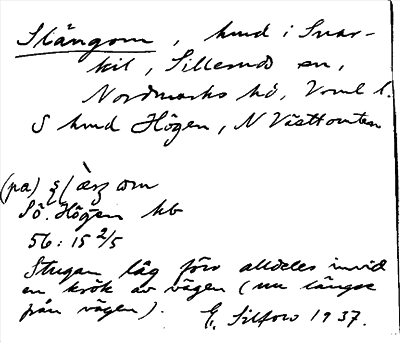 Slängom, hmd i Svar-
kil, Silleruds sn,
Nordmarks hd, Vrml l.
S hmd Högen, N Västtomten
(pa)
Sö. Högen kb
56:15 2/5
Stugan låg förr alldeles invid
en krök av vägen (nu längre
från vägen).
E. Silfors 1937.